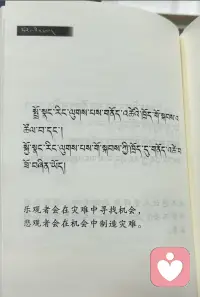 སྤྲོ་སྣང་རིང་ལུགས་པས་གནོད་འཚེའི་ཁྲོད་གོ་སྐབས་འ
ཚོལ་བ་དང་།
སྐྱོ་སྣང་རིང་ལུགས་པས་གོ་སྐབས་ཀྱི་ཁྲོད་དུ་གནོད་འཚེ་བ
ཟོ་བཞིན་ཡོད།
乐观者会在灾难中寻找机会，
悲观者会在机会中制造灾难。